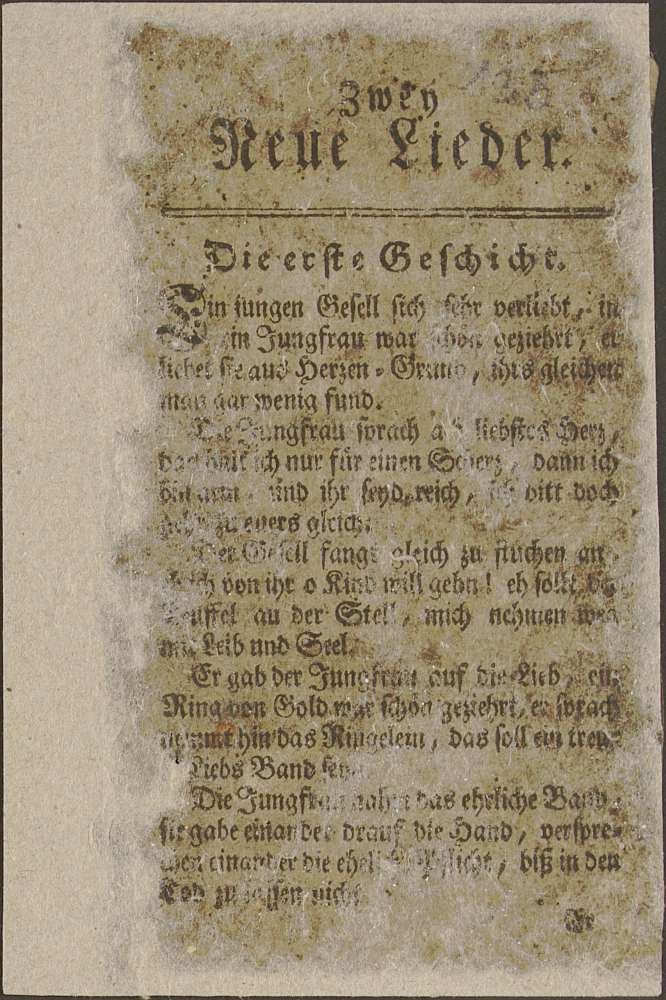 Zwey
Neue Lieder.
Die erste Geschicht.
Ein jungen Gesell sich sehr verliebt, in
ein Jungfrau war schön geziehrt, er
liebet sie aus Herzen-Grund, ihrs gleichen
man gar wenig fund.
Die Jungfrau sprach ach liebstes Herz,
das halt ich nur für einen Scherz, dann ich
bin arm, und ihr seyd reich, ich bitt doch
zu euers gleich.
Der Gesell fangt gleich zu fluchen an,
ich von ihr o Kind will gehn! eh sollt der
Teuffel an der Stell, mich nehmen weg
mit Leib und Seel.
Er gab der Jungfrau auf die Lieb, ein
Ring von Gold war schön geziehrt, er sprach
nemmt hin das Ringelein, das soll ein treu-
Liebs Band seyn.
Die Jungfrau nahm das ehrliche Band,
sie gabe einander drauf die Hand, verspre-
chen einander die ehelich Pflicht, biß in den
Tod zu lassen nicht.
Er